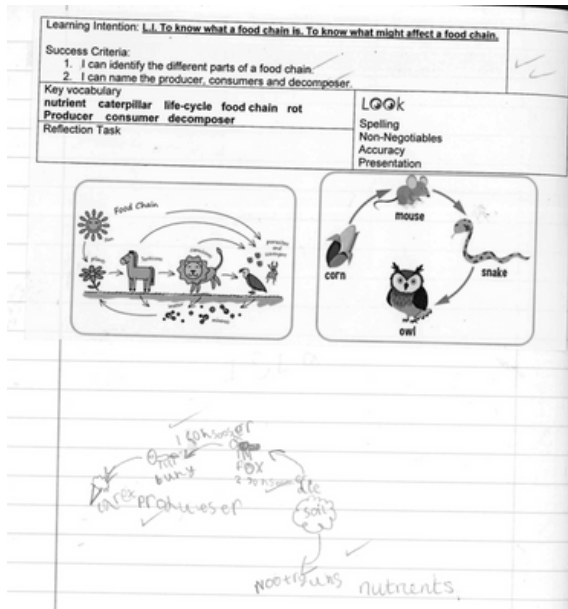 Learning Intention: L.I. To know what a food chain is. To know what might affect a food chain.
Success Criteria:
1. I can identify the different parts of a food chain.
2. I can name the producer, consumers and decomposer.
Key vocabulary
nutrient caterpillar life-cycle food chain rot
Producer consumer decomposer
Reflection Task
LOOk
Spelling
Non-Negotiables
Accuracy
Presentation
Food Chain
sun
plants
herbivore
mouse
corn
snake
owl
buny
fox
produeser
die
soil
nutrients